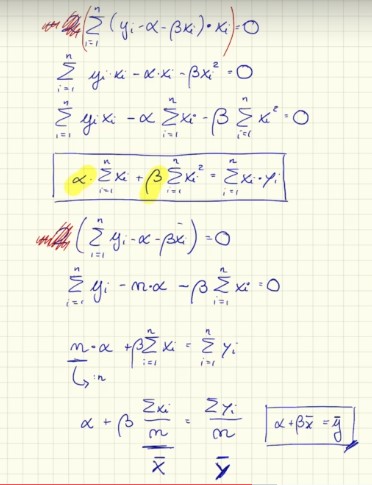 (∑_{i=1}^{n} (yᵢ - α - βxᵢ) · xᵢ) = 0
∑_{i=1}^{n} yᵢ·xᵢ - α·xᵢ - βxᵢ² = 0
∑_{i=1}^{n} yᵢxᵢ - α ∑_{i=1}^{n} xᵢ - β ∑_{i=1}^{n} xᵢ² = 0
α · ∑_{i=1}^{n} xᵢ + β ∑_{i=1}^{n} xᵢ² = ∑_{i=1}^{n} xᵢ·yᵢ
(∑_{i=1}^{n} yᵢ - α - βxᵢ) = 0
∑_{i=1}^{n} yᵢ - n·α - β ∑_{i=1}^{n} xᵢ = 0
n·α + β ∑_{i=1}^{n} xᵢ = ∑_{i=1}^{n} yᵢ
:n
α + β ∑xᵢ/n = ∑yᵢ/n
x̄ ȳ
α + βx̄ = ȳ